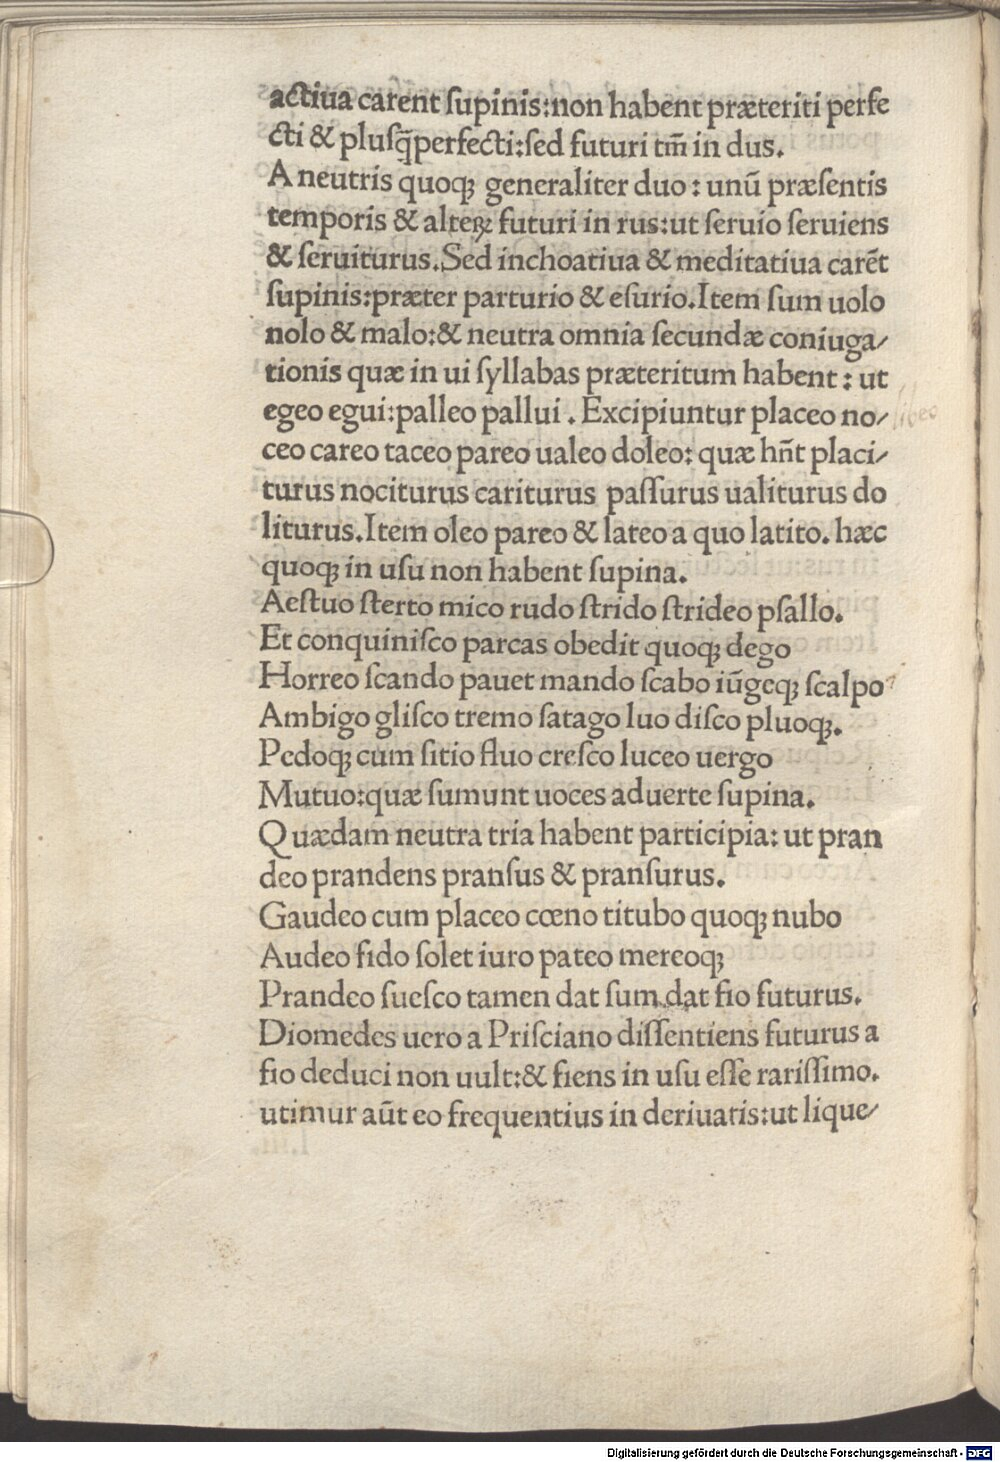 actiua carent ſupinis:non habent præteriti perfe
cti & pluſq̄perfecti:ſed futuri tm̄ in dus.
A neutris quoqꝫ generaliter duo : unū præſentis
temporis & alteꝝ futuri in rus:ut ſeruio ſeruiens
& ſeruiturus.Sed inchoatiua & meditatiua carēt
ſupinis:præter parturio & eſurio.Item ſum uolo
nolo & malo:& neutra omnia ſecundæ coniuga/
tionis quæ in ui ſyllabas præteritum habent : ut
egeo egui:palleo pallui . Excipiuntur placeo no/
libeo
ceo careo taceo pareo ualeo doleo: quæ hn̄t placi/
turus nociturus cariturus paſſurus ualiturus do
liturus.Item oleo pareo & lateo a quo latito. hæc
quoqꝫ in uſu non habent ſupina.
Aeſtuo ſterto mico rudo ſtrido ſtrideo pſallo.
Et conquiniſco parcas obedit quoqꝫ dego
Horreo ſcando pauet mando ſcabo iūgeqꝫ ſcalpo
Ambigo gliſco tremo ſatago luo diſco pluoqꝫ.
Pedoqꝫ cum ſitio fluo creſco luceo uergo
Mutuo:quæ ſumunt uoces aduerte ſupina.
Quædam neutra tria habent participia: ut pran
deo prandens pranſus & pranſurus.
Gaudeo cum placeo cœno titubo quoqꝫ nubo
Audeo fido ſolet iuro pateo mereoqꝫ
Prandeo ſueſco tamen dat ſum dat fio futurus.
Diomedes uero a Priſciano diſſentiens futurus a
fio deduci non uult:& fiens in uſu eſſe rariſſimo.
utimur aūt eo frequentius in deriuatis:ut lique/
Digitalisierung gefördert durch die Deutsche Forschungsgemeinschaft - DFG